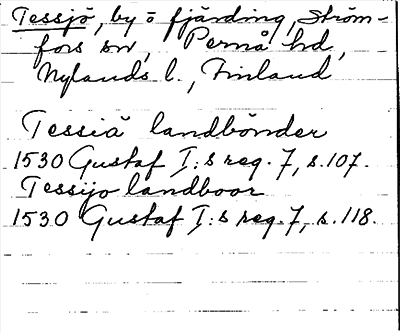 Tessjö, by o fjärding, Ström-
fors sn, Pernå hd,
Nylands l., Finland
Tessiä landbönder
1530 Gustaf I:s reg. 7, s. 107.
Tessijo landboor
1530 Gustaf I:s reg. 7, s. 118.